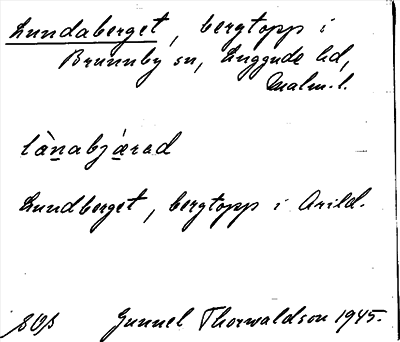 Lundaberget, bergtopp i
Brunnby sn, Luggude hd,
Malm. l.
lànabjárad
Lundberget, bergtopp i Arild.
SOs Gunnel Thorwaldson 1945.